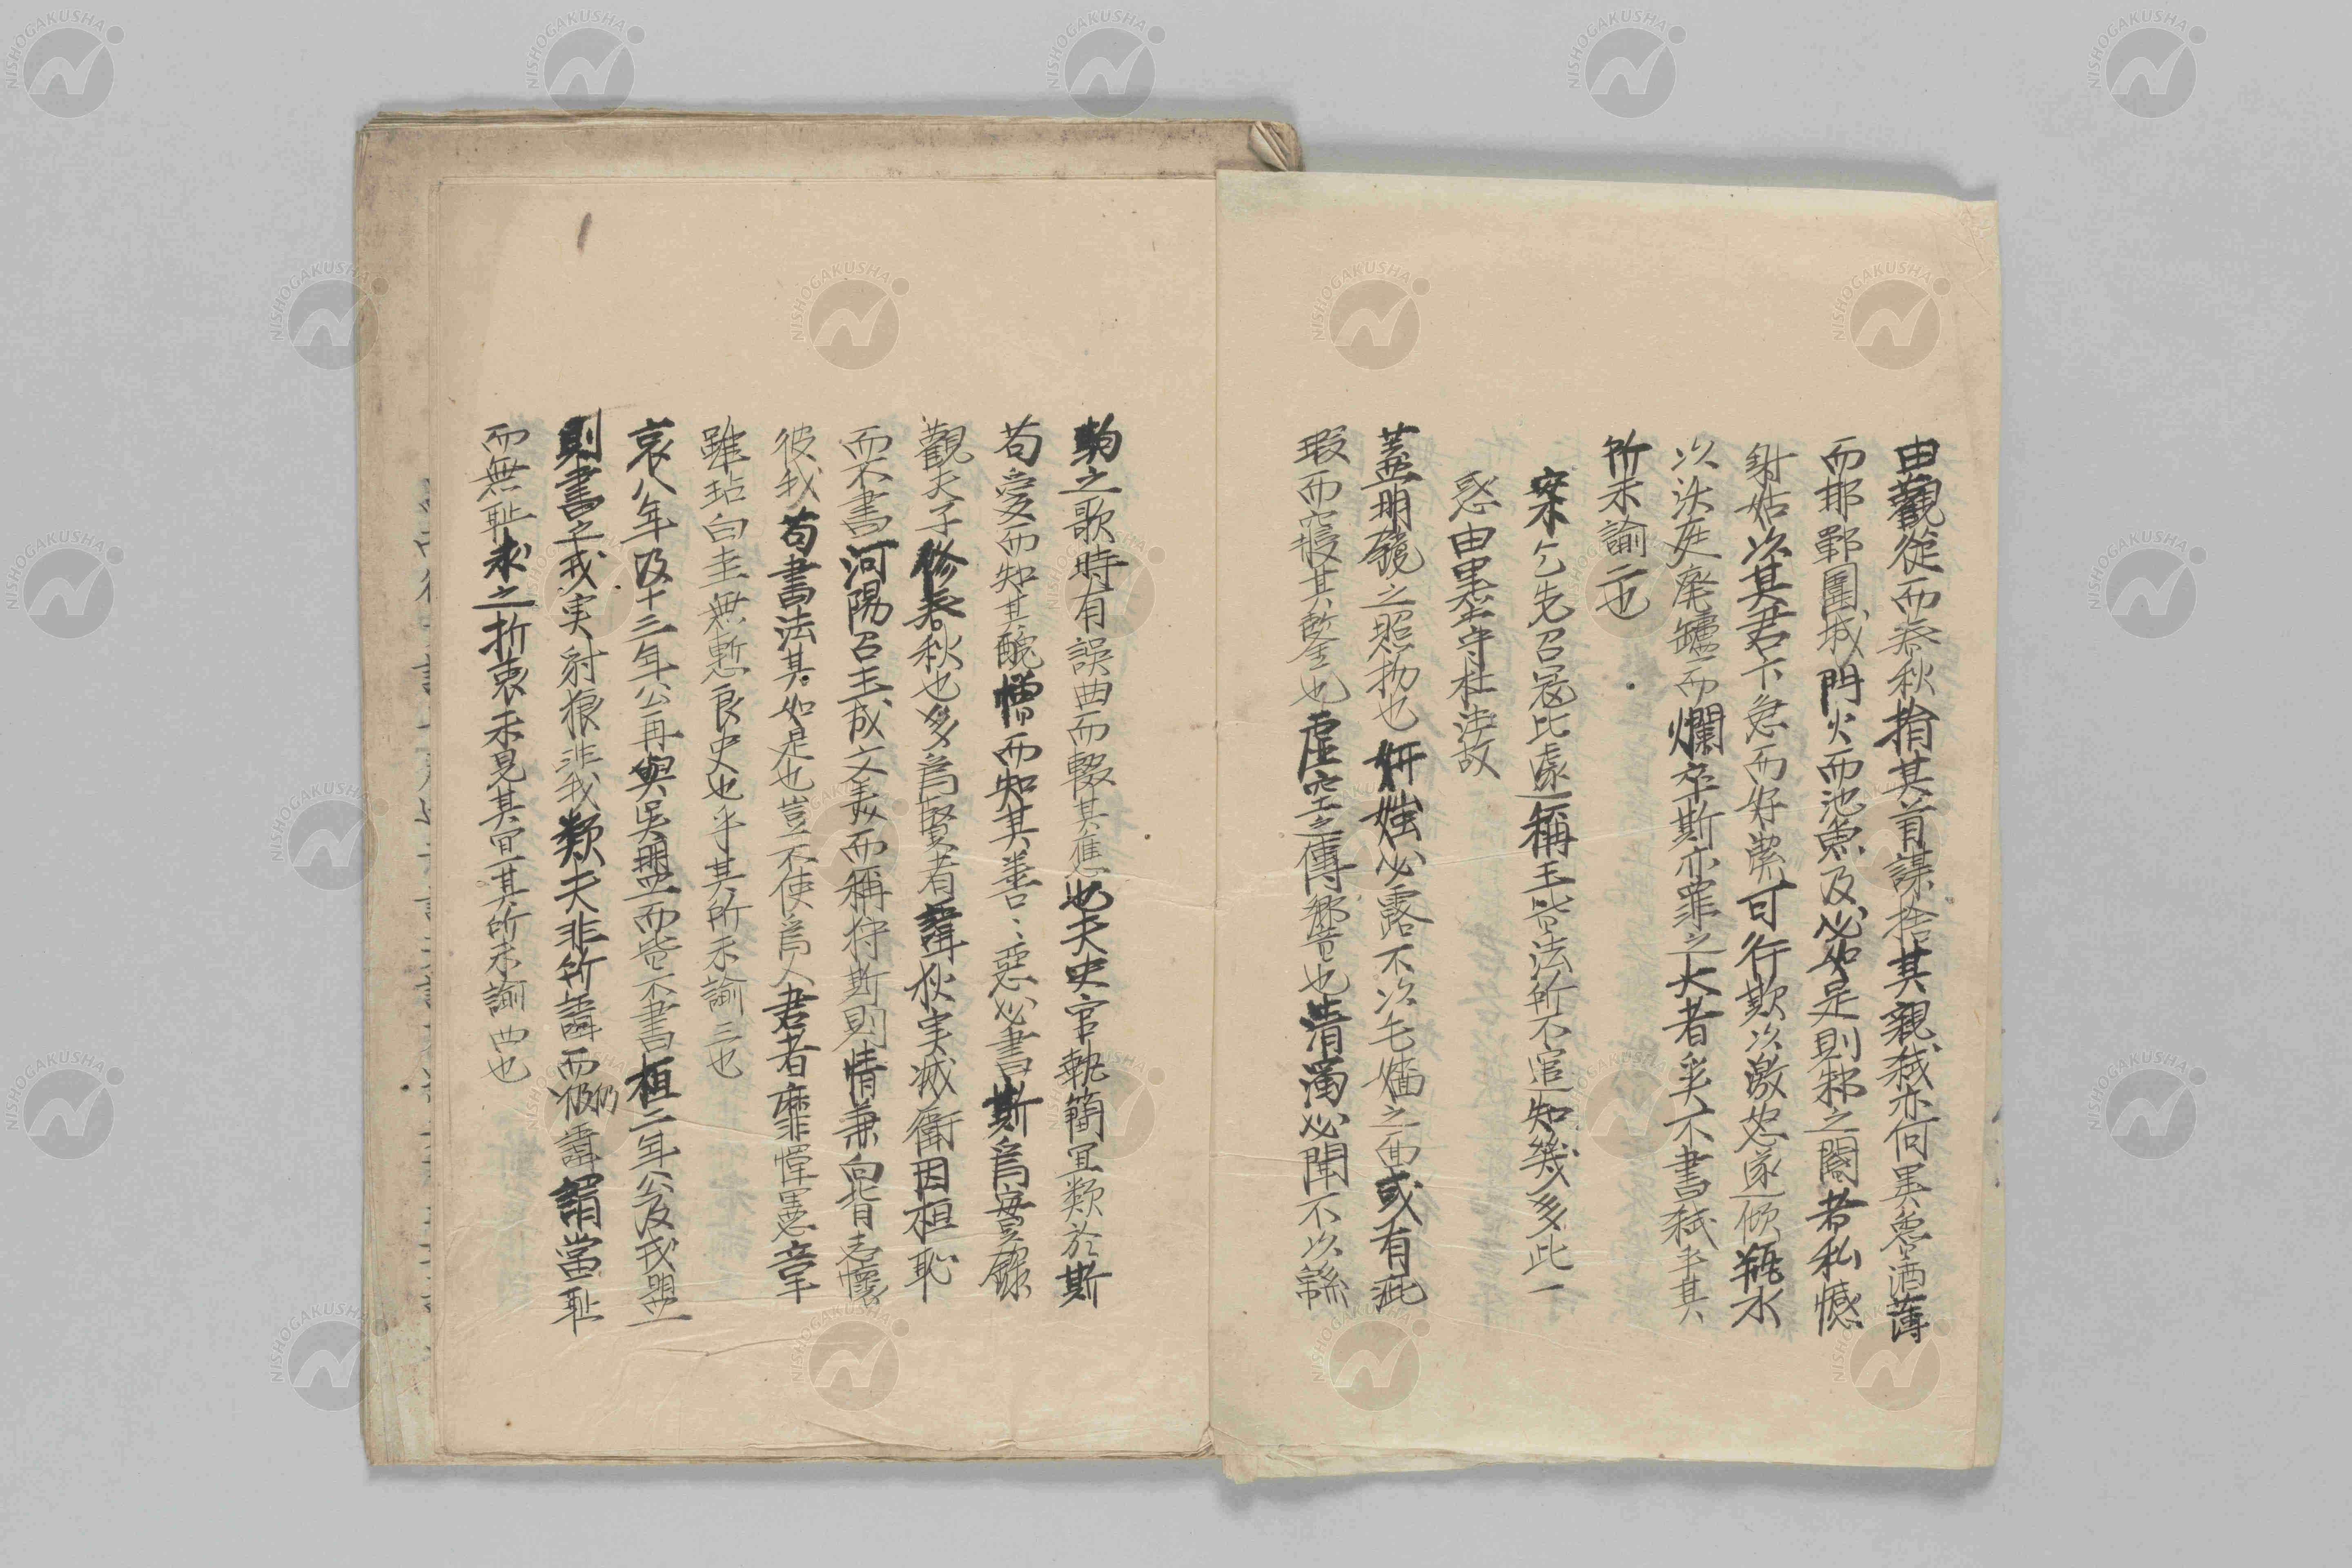 由觀從而春秋捐其首謀捨其親弒亦何異魯酒薄
而邯鄲圍城門火而池魚及必如是則邾之閽者私憾
射姑以其君卞急而好潔可行欺以激怒遂傾瓶水
以沃庭廃鑪而爛卒斯亦罪之大者奚不書弒乎其
所未諭二也
案亡先召冦比遽稱王皆法所不逭知幾多此一
惑由墨守杜法故
蓋明鏡之照物也妍媸必露不以毛嬙之面或有疵
瑕而寢其鑒也虛空之傳響也清濁必聞不以緜
駒之歌時有誤曲而輟其應也夫史官執簡宜類於斯
苟愛而知其醜憎而知其善〻惡必書斯爲實錄
觀夫子修春秋也多爲賢者諱狄実滅衛因桓恥
而不書河陽召王成文美而稱狩斯則情兼向背志懷
彼我苟書法其如是也豈不使爲人君者靡憚憲章
雖玷白圭無慙良史也乎其所未諭三也
哀八年及十三年公再與吳盟而皆不書桓二年公及戎盟
則書之戎実豺狼非我類夫非所諱而仍諱謂當恥
而無恥求之折衷未見其宜其所未諭四也
NISHOGAKUSHA